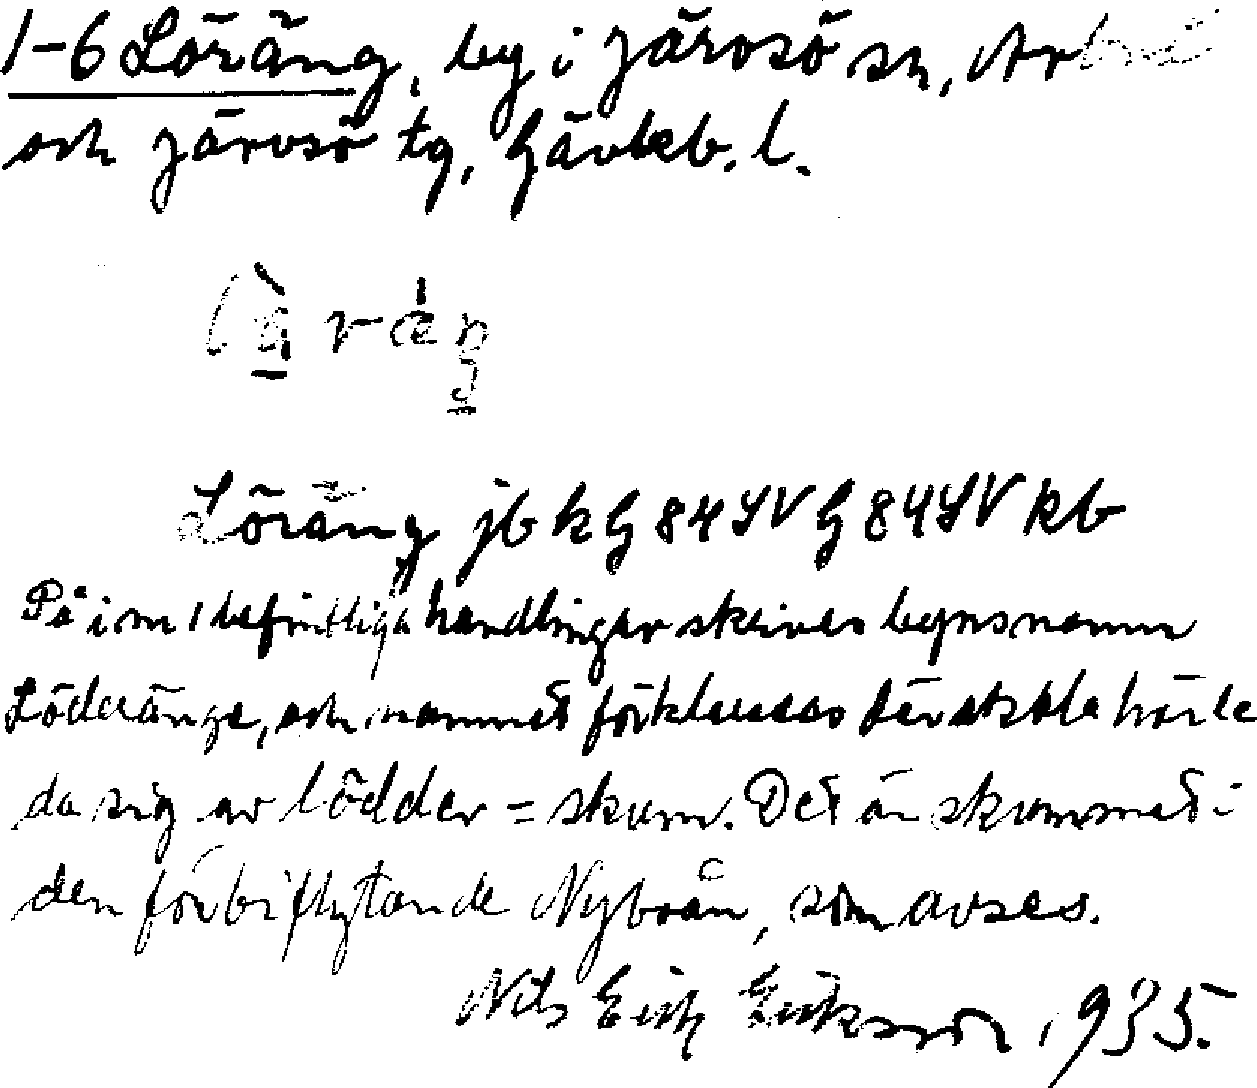 1-6 Löräng, by i Järvsö sn, Arbrå
och Järvsö tg, Gävleb. l.
Löräng jb k G 84 SV G 84 SV kb
På i m / befintliga handlingar skrives byns namn
Löderänge, och namnet förklaras där skola härle
da sig av lödder = skum. Det är skummet i
den förbiflytande Nyboån, som avses.
Nils Erik Eriksson, 1935.